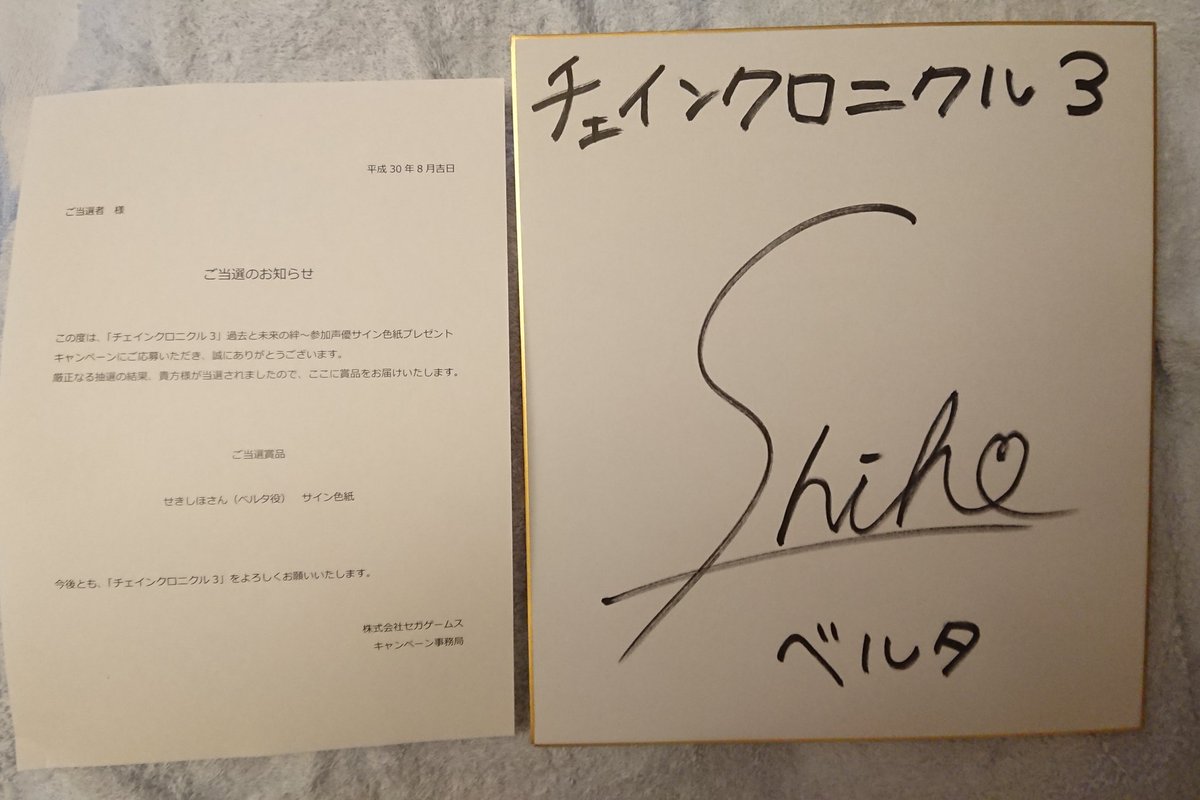 平成30年8月吉日
ご当選者 様
ご当選のお知らせ
この度は、「チェインクロニクル3」過去と未来の絆～参加声優サイン色紙プレゼント
キャンペーンにご応募いただき、誠にありがとうございます。
厳正なる抽選の結果、貴方様が当選されましたので、ここに賞品をお届けいたします。
ご当選賞品
せきしほさん（ベルタ役） サイン色紙
今後とも、「チェインクロニクル3」をよろしくお願いいたします。
株式会社セガゲームス
キャンペーン事務局
チェインクロニクル3
Shiho
ベルタ